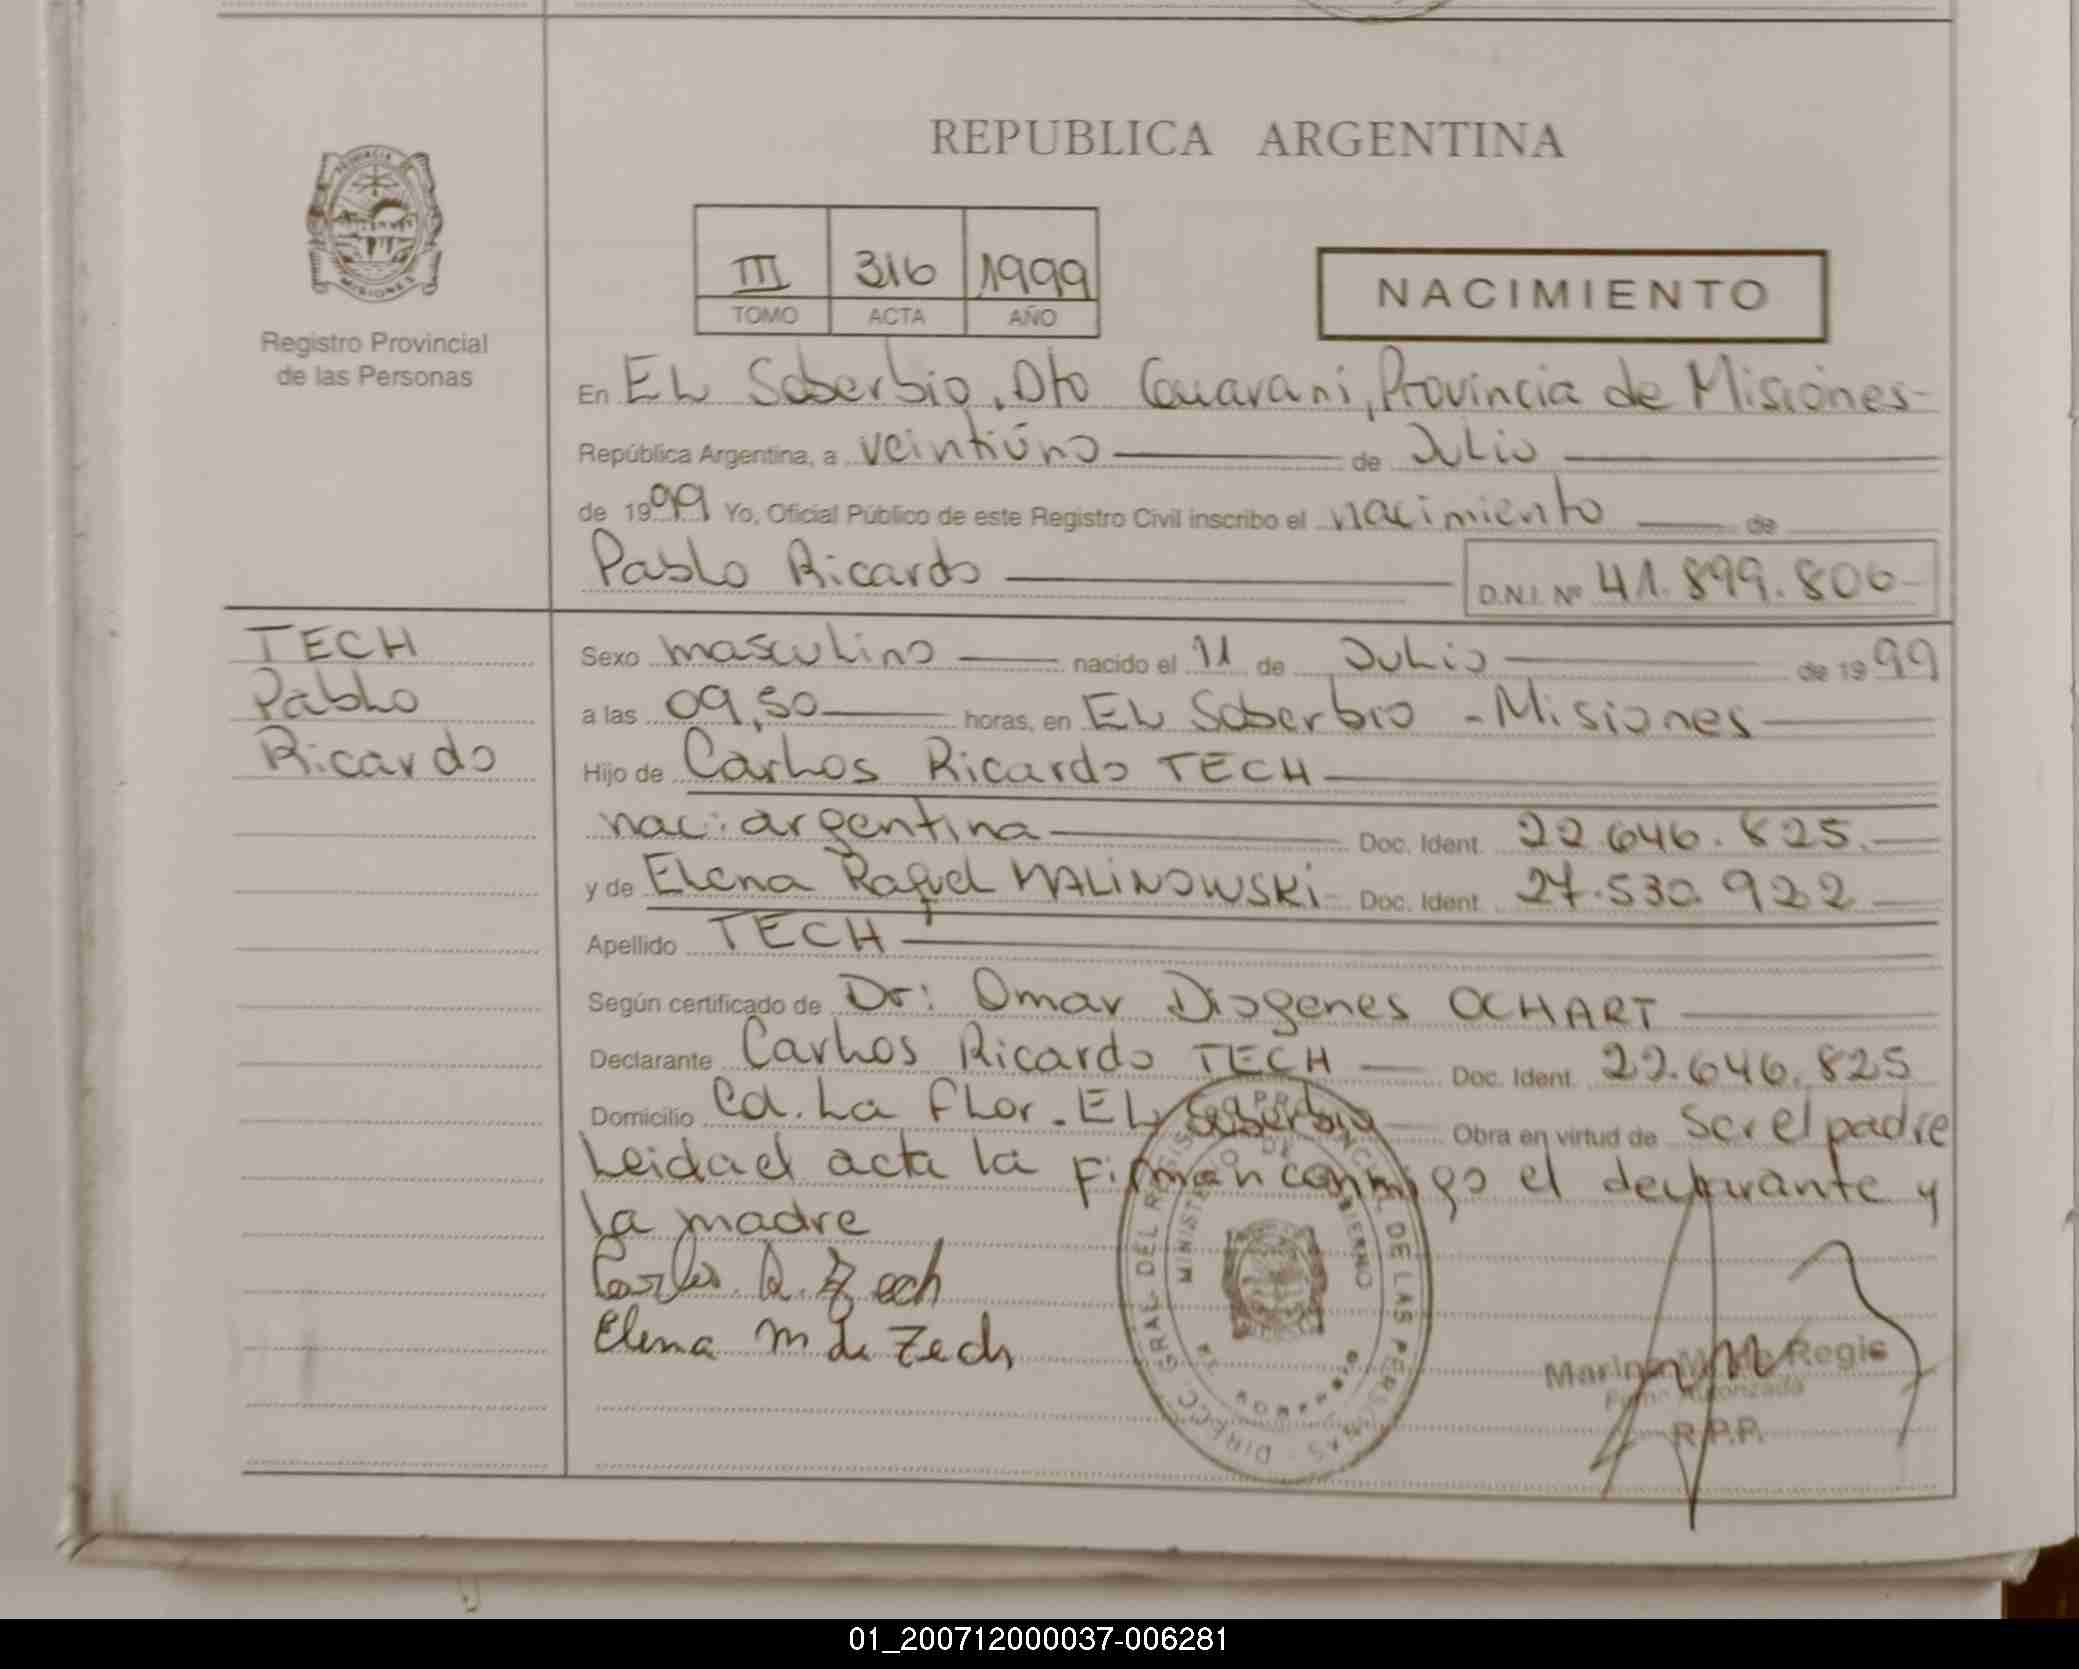 REPUBLICA ARGENTINA
III 316 1999
TOMO ACTA AÑO
NACIMIENTO
Registro Provincial
de las Personas
En El Soberbio, Dto Guarani, Provincia de Misiones
República Argentina, a veintiúno de Julio
de 1999 Yo, Oficial Público de este Registro Civil inscribo el nacimiento de
Pablo Ricardo D.N.I. Nº 41.899.806
TECH
Pablo
Ricardo
Sexo masculino nacido el 11 de Julio de 1999
a las 09,50 horas, en El Soberbio - Misiones
Hijo de Carlos Ricardo TECH
nac: argentina Doc. Ident. 22.646.825.
y de Elena Raquel MALINOWSKI Doc. Ident. 27.530.922
Apellido TECH
Según certificado de Dr: Omar Diogenes OCHART
Declarante Carlos Ricardo TECH Doc. Ident. 22.646.825
Domicilio Cd. La Flor - El Soberbio Obra en virtud de ser el padre
Leida el acta la firman conmigo el declarante y
la madre
Carlos R. Zech
Elena M de Zech
DIRECC. GRAL. DEL REGISTRO PROVINCIAL DE LAS PERSONAS
MINISTERIO DE GOBIERNO
MISIONES
Regis
Autorizada
R.P.P.
01_200712000037-006281